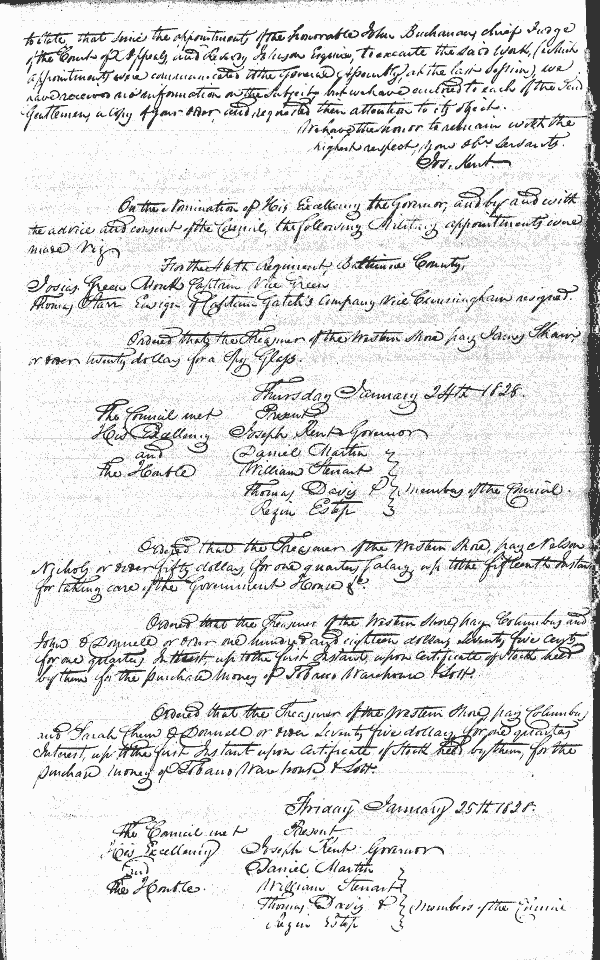 to state, that since the appointment of the honorable John Buchanan, chief Judge
of the Court of Appeals and Reverdy Johnson Esquire, to execute the said work, (which
appointments were communicated to the General Assembly, at the last session,) we
have received no information on the subject, but we have enclosed to each of the said
Gentlemen a Copy of your order and requested their attention to its object.
We have the honor to remain with the
highest respect, your obt. Servants.
Jos. Kent
On the Nomination of His Excellency the Governor, and by and with
the advice and consent of the Council, the following Military appointments were
made Viz
For the 46th Regiment Baltimore County,
Josias Green Captain Vice Green
Thomas Starr Ensign of Captain Gatch's Company Vice Cunningham resigned.
Ordered that the Treasurer of the Western Shore pay James Shaw
or order twenty dollars for a Spy Glass.
Thursday January 24th 1828.
The Council met Present
His Excellency Joseph Kent Governor
and Daniel Martin
the Honble William Stewart
Thomas Davis & members of the Council.
Rezin Estep
Ordered that the Treasurer of the Western Shore, pay Nelson
Nichols or order fifty dollars, for one quarters salary up to the fifteenth Instant
for taking care of the Government House &c.
Ordered that the Treasurer of the Western Shore, pay Columbus and
John O Donnell or order one hundred and eighteen dollars seventy five cents
for one quarters Interest, up to the first Instant, upon certificate of stock held
by them for the purchase money of Tobacco Warehouse & Lott.
Ordered that the Treasurer of the Western Shore, pay Columbus
and Sarah Chew O Donnell or order seventy five dollars, for one quarters
Interest, up to the first Instant upon Certificate of Stock held by them, for the
purchase money of Tobacco Warehouse & Lott.
Friday January 25th 1828.
The Council met Present
His Excellency Joseph Kent Governor
and Daniel Martin
the Honbles. William Stewart
Thomas Davis & Members of the Council
Rezin Estep